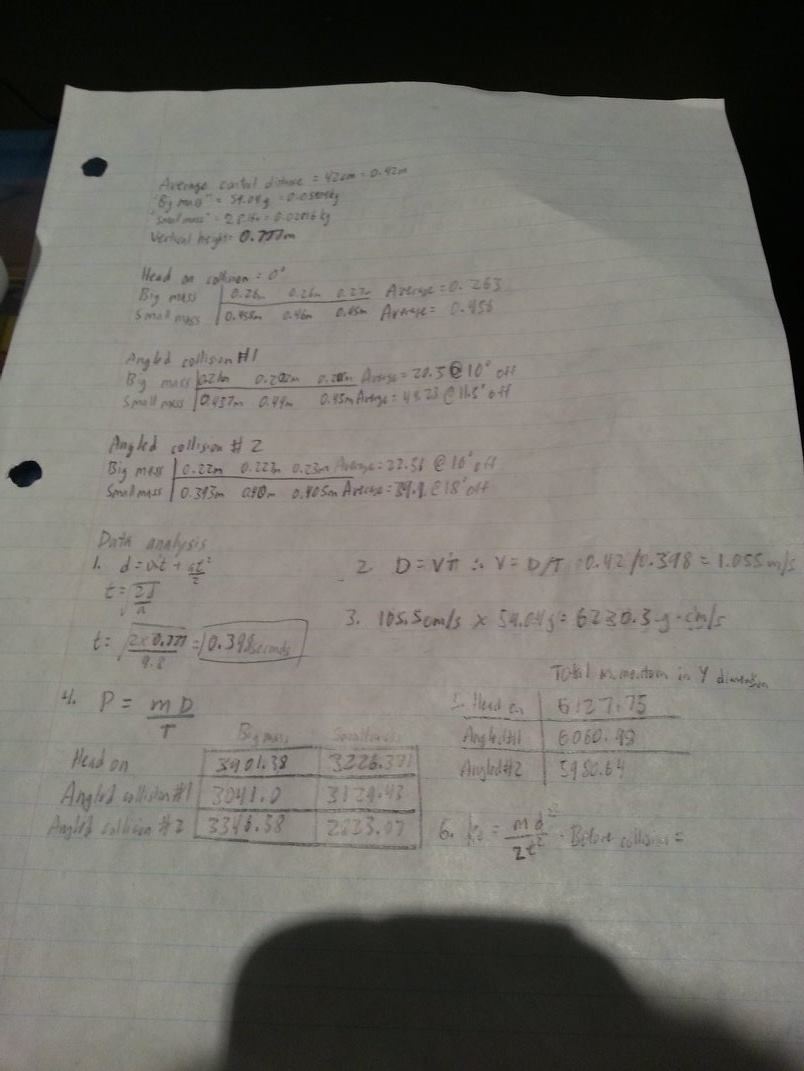 Average control distance = 42cm = 0.42m
"Big mass" = 59.04g = 0.05904kg
"Small mass" = 28.16g = 0.02816kg
Vertical height = 0.777m
Head on collision = 0°
Big mass 0.26m 0.26m 0.27m Average = 0.263
Small mass 0.458m 0.46m 0.45m Average = 0.456
Angled collision #1
Big mass 0.21m 0.202m Average = 20.5 @ 10° off
Small mass 0.437m 0.44m 0.45m Average = 44.23 @ 11.5° off
Angled collision # 2
Big mass 0.22m 0.227m 0.23m Average = 22.56 @ 16° off
Small mass 0.393m 0.40m 0.405m Average = 39.9 @ 18° off
Data analysis
1. d = vt + at²/2
t = √2d/a
t = √2x0.777/9.8 = 0.398 seconds
2 D = VT ∴ V = D/T 0.42/0.398 = 1.055 m/s
3. 105.5cm/s x 59.04g = 6230.3 g·cm/s
4. P = mD/T
Big mass Small mass
Head on 3901.38 3226.371
Angled collision #1 3041.0 3129.43
Angled collision #2 3346.58 2823.07
Total momentum in Y dimension
5. Head on 6127.75
Angled #1 6060.48
Angled #2 5980.64
6. = md²/2t² Before collision =